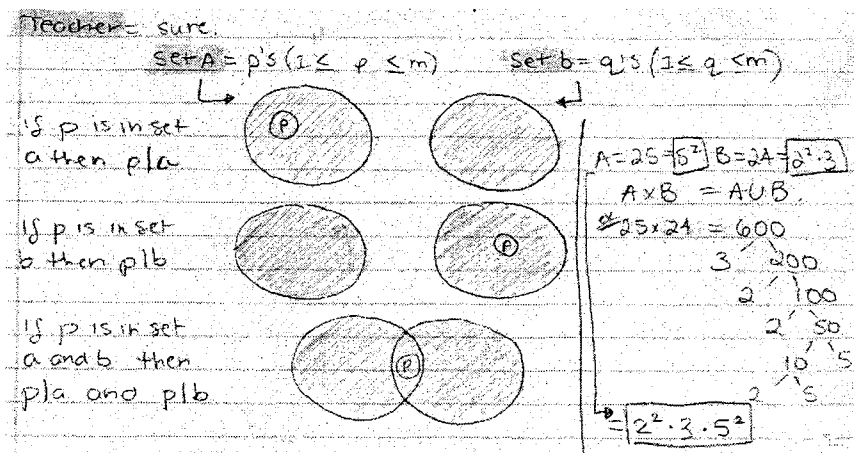 Teacher= sure.
Set A = p's (1 ≤ p ≤ m) Set b = q's (1 ≤ q ≤ m)
if p is in set
a then p|a
p
If p is in set
b then p|b
p
if p is in set
a and b then
p|a and p|b
p
A=25=5² B=24=2²·3
A×B = A∪B.
25×24 = 600
3 200
2 100
2 50
10 5
2 5
= 2²·3·5²